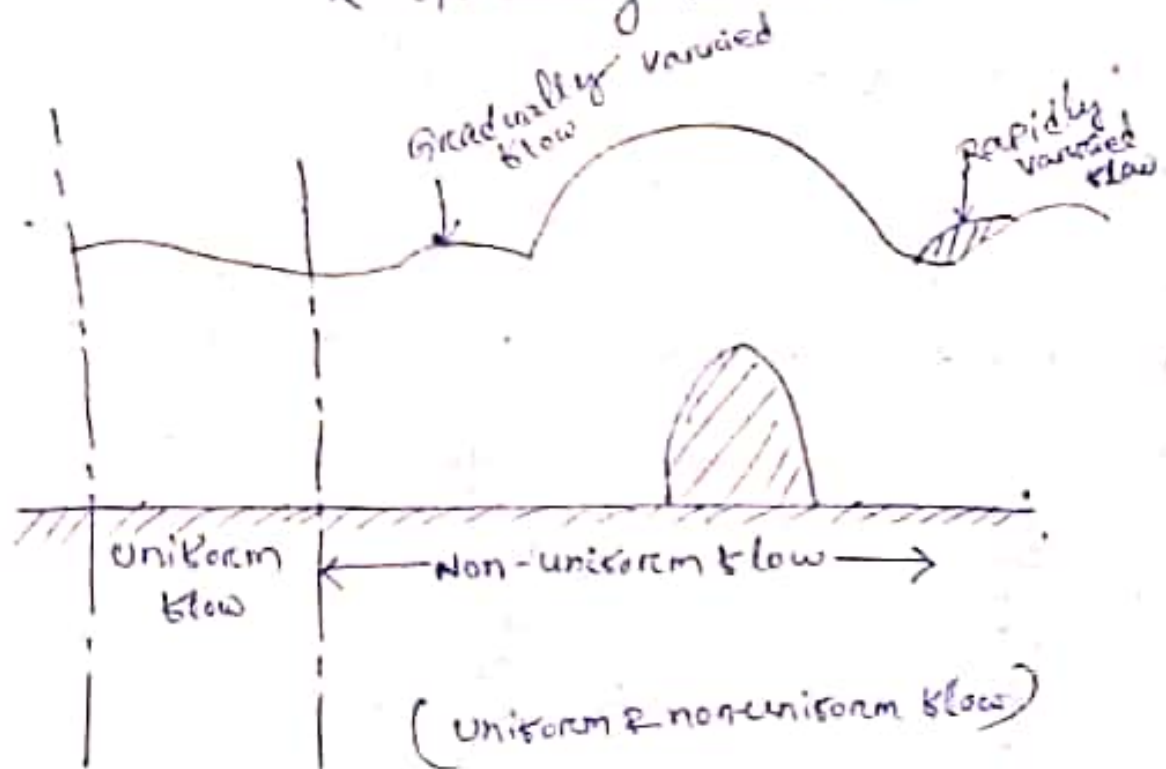 Gradually varied
flow
Rapidly
varied
flow
uniform
flow
Non-uniform flow
(uniform & non-uniform flow)